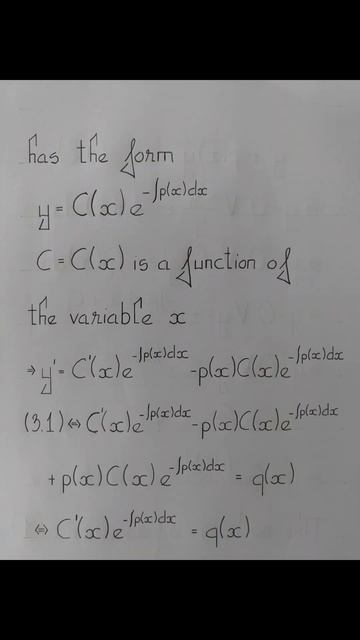 has the form
y = C(x) e^{-∫p(x)dx}
C = C(x) is a function of
the variable x
⇒ y' = C'(x) e^{-∫p(x)dx} - p(x)C(x) e^{-∫p(x)dx}
(3.1) ⇔ C'(x) e^{-∫p(x)dx} - p(x)C(x) e^{-∫p(x)dx}
+ p(x)C(x) e^{-∫p(x)dx} = q(x)
⇔ C'(x) e^{-∫p(x)dx} = q(x)